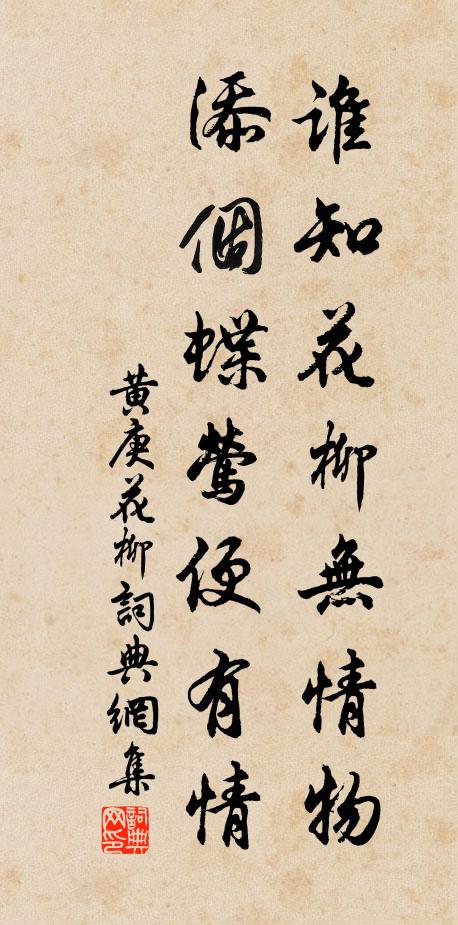 誰知花柳無情物
添個蝶鶯便有情
黃庚花柳詞典網集
詞典网印